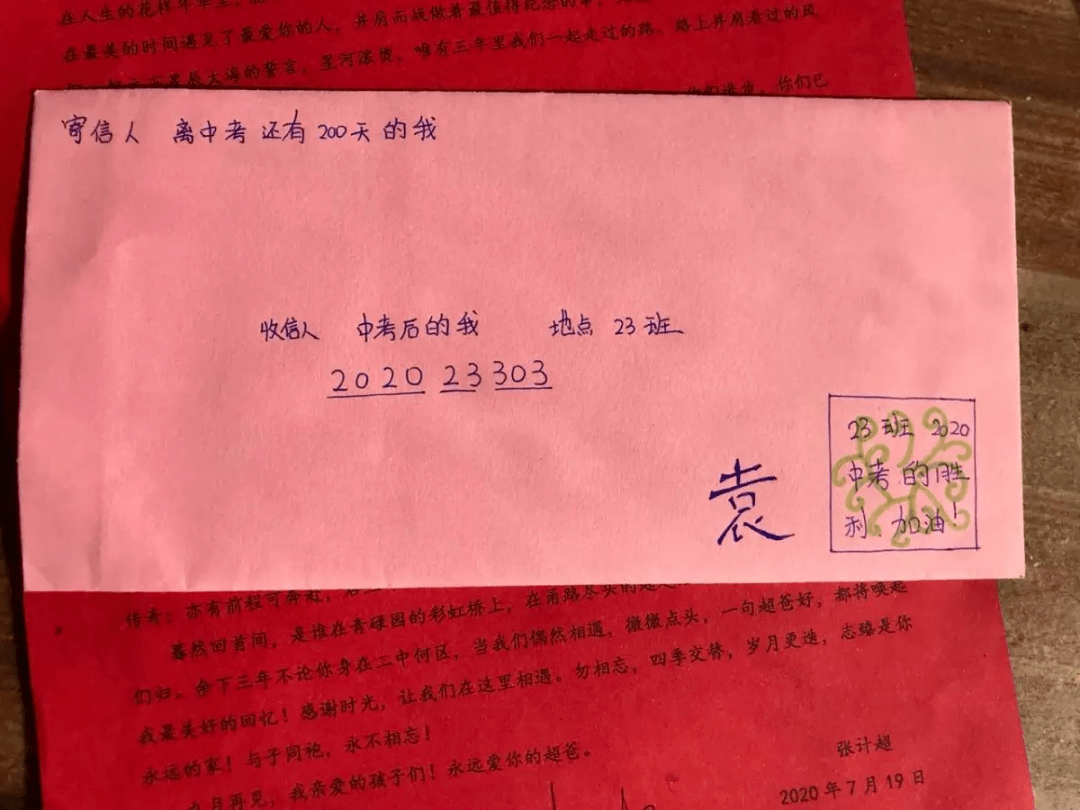 在人生的花样年华里
在最美的时间遇见了最爱你的人，并肩而战做着最值得纪念的事
星辰大海的誓言，星河滚烫，唯有三年里我们一起走过的路，路上并肩看过的风
你们进步，你们已
寄信人 离中考还有200天的我
收信人 中考后的我 地点 23班
2020 23 303
袁
23班 2020
中考的胜
利.加油！
传奇；亦有前程可奔赴，
蓦然回首间，是谁在青碌园的彩虹桥上，在甬路尽头的
们归。余下三年不论你身在二中何区，当我们偶然相遇，微微点头，一句超爸好，都将唤起
我最美好的回忆！感谢时光，让我们在这里相遇。勿相忘，四季交替，岁月更迭，志臻是你
永远的家！与子同袍，永不相忘！
九月再见，我亲爱的孩子们！永远爱你的超爸。
张计超
2020年7月19日